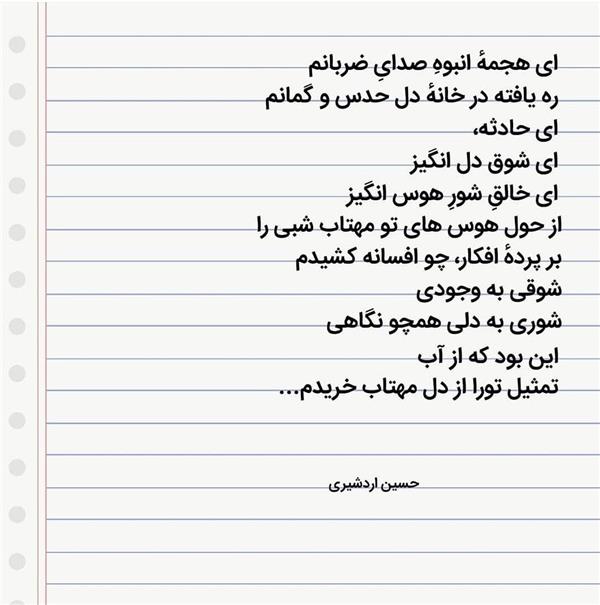 ای هجمهٔ انبوهِ صدایِ ضربانم
ره یافته در خانهٔ دل حدس و گمانم
ای حادثه،
ای شوق دل انگیز
ای خالقِ شورِ هوس انگیز
از حول هوس های تو مهتاب شبی را
بر پردهٔ افکار، چو افسانه کشیدم
شوقی به وجودی
شوری به دلی همچو نگاهی
این بود که از آب
تمثیل تورا از دل مهتاب خریدم...
حسین اردشیری